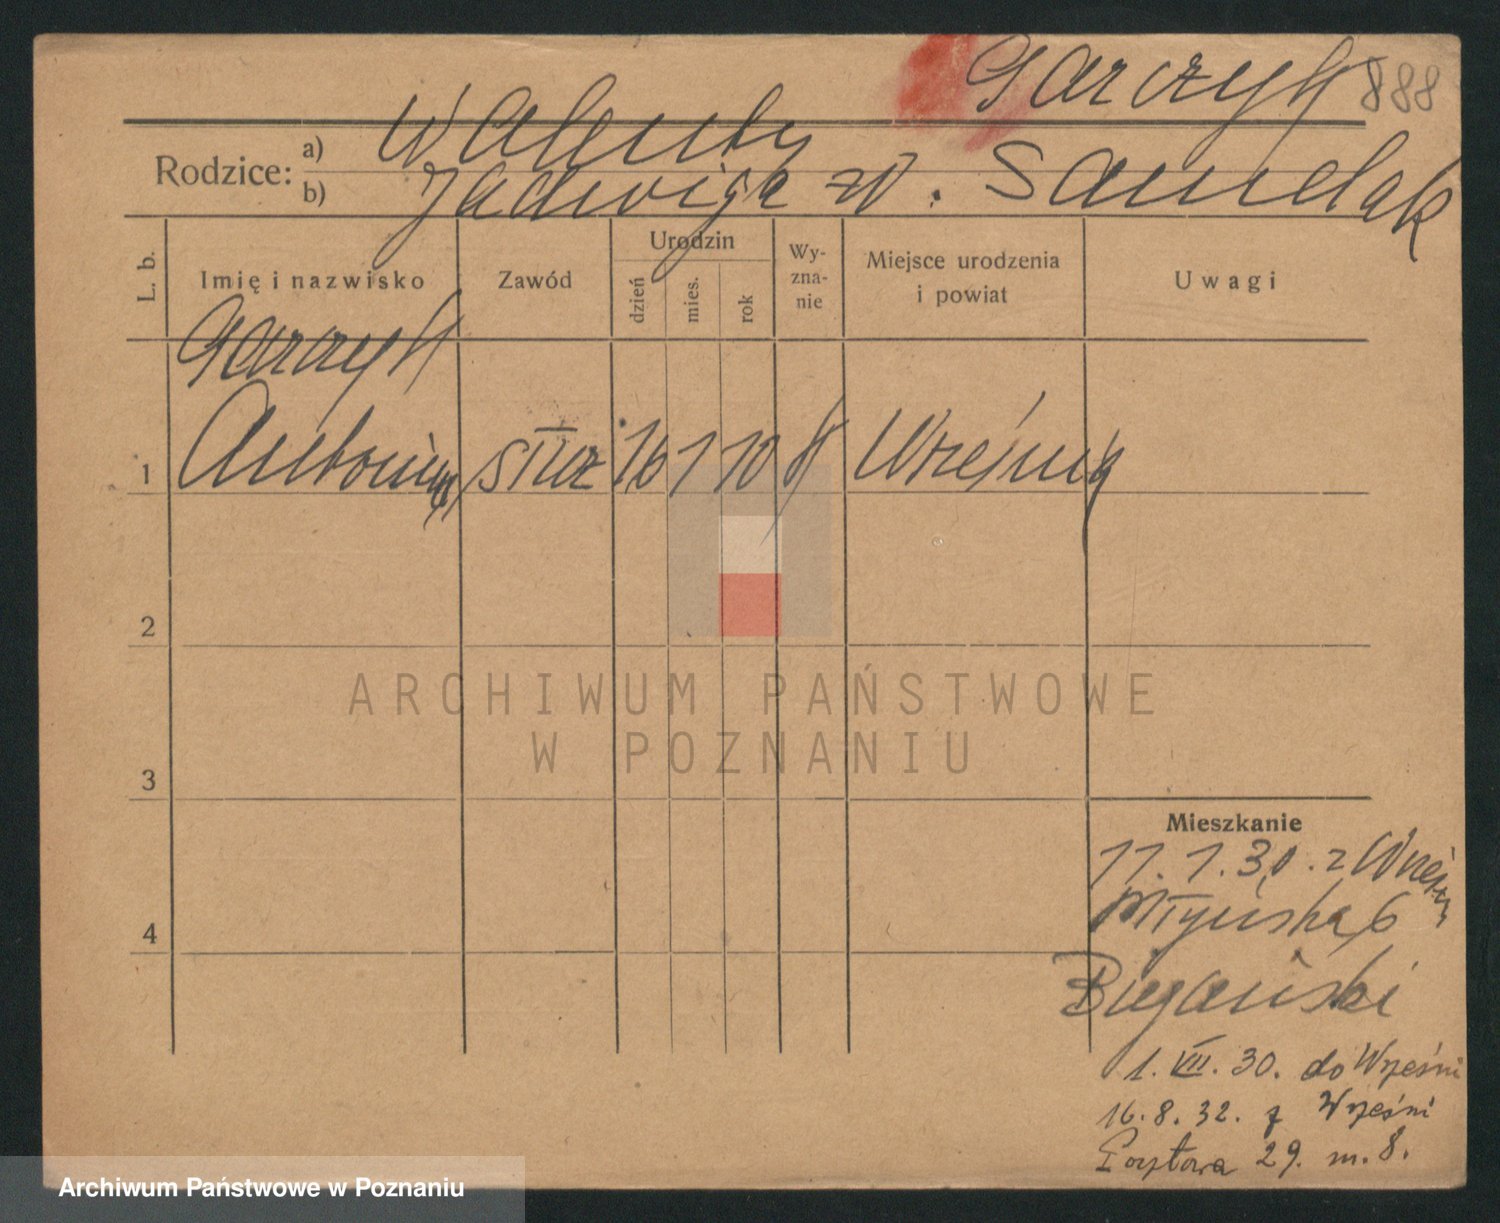 Garczyk 888
Rodzice: a) Walenty
b) Jadwiga zd. Sandelak
L. b.
Imię i nazwisko
Zawód
Urodzin
dzień
mies.
rok
Wy-
zna-
nie
Miejsce urodzenia
i powiat
Uwagi
Garczyk
1 Antonina służ 16 1 10 k Września
2
3
4
Mieszkanie
11.1.30. z Wrześni
Młyńska 6
Biegański
1. VII. 30. do Wrześni
16.8.32. z Wrześni
29. m. 8.
ARCHIWUM PAŃSTWOWE
W POZNANIU
Archiwum Państwowe w Poznaniu